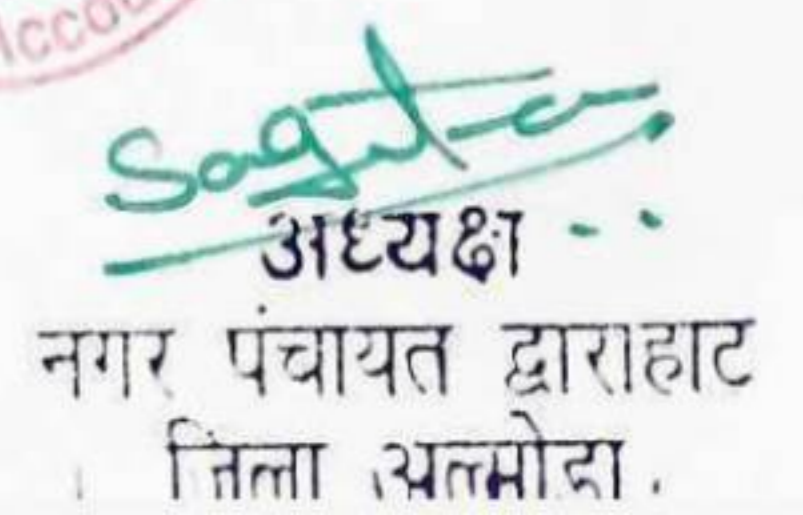 Accou
अध्यक्ष
नगर पंचायत द्वाराहाट
जिला अल्मोडा.